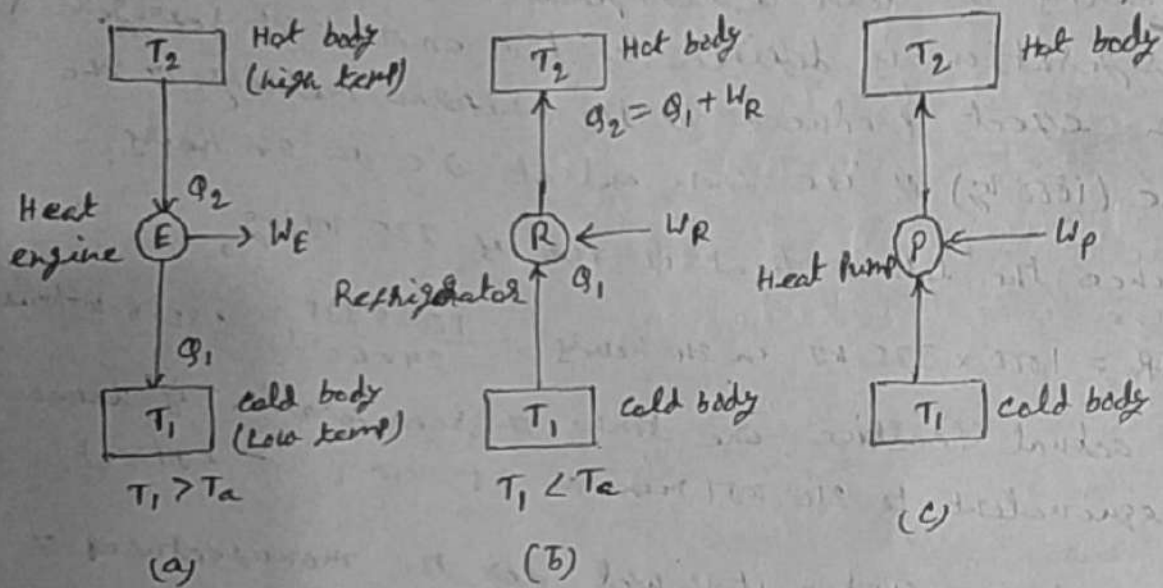 T₂
Hot body
(high temp)
Q₂
Heat
engine
E
W_E
Q₁
T₁
cold body
(Low temp)
T₁ > Ta
(a)
T₂
Hot body
Q₂ = Q₁ + W_R
R
W_R
Refrigerator
Q₁
T₁
cold body
T₁ < Ta
(b)
T₂
Hot body
Heat Pump
P
W_P
T₁
cold body
(c)